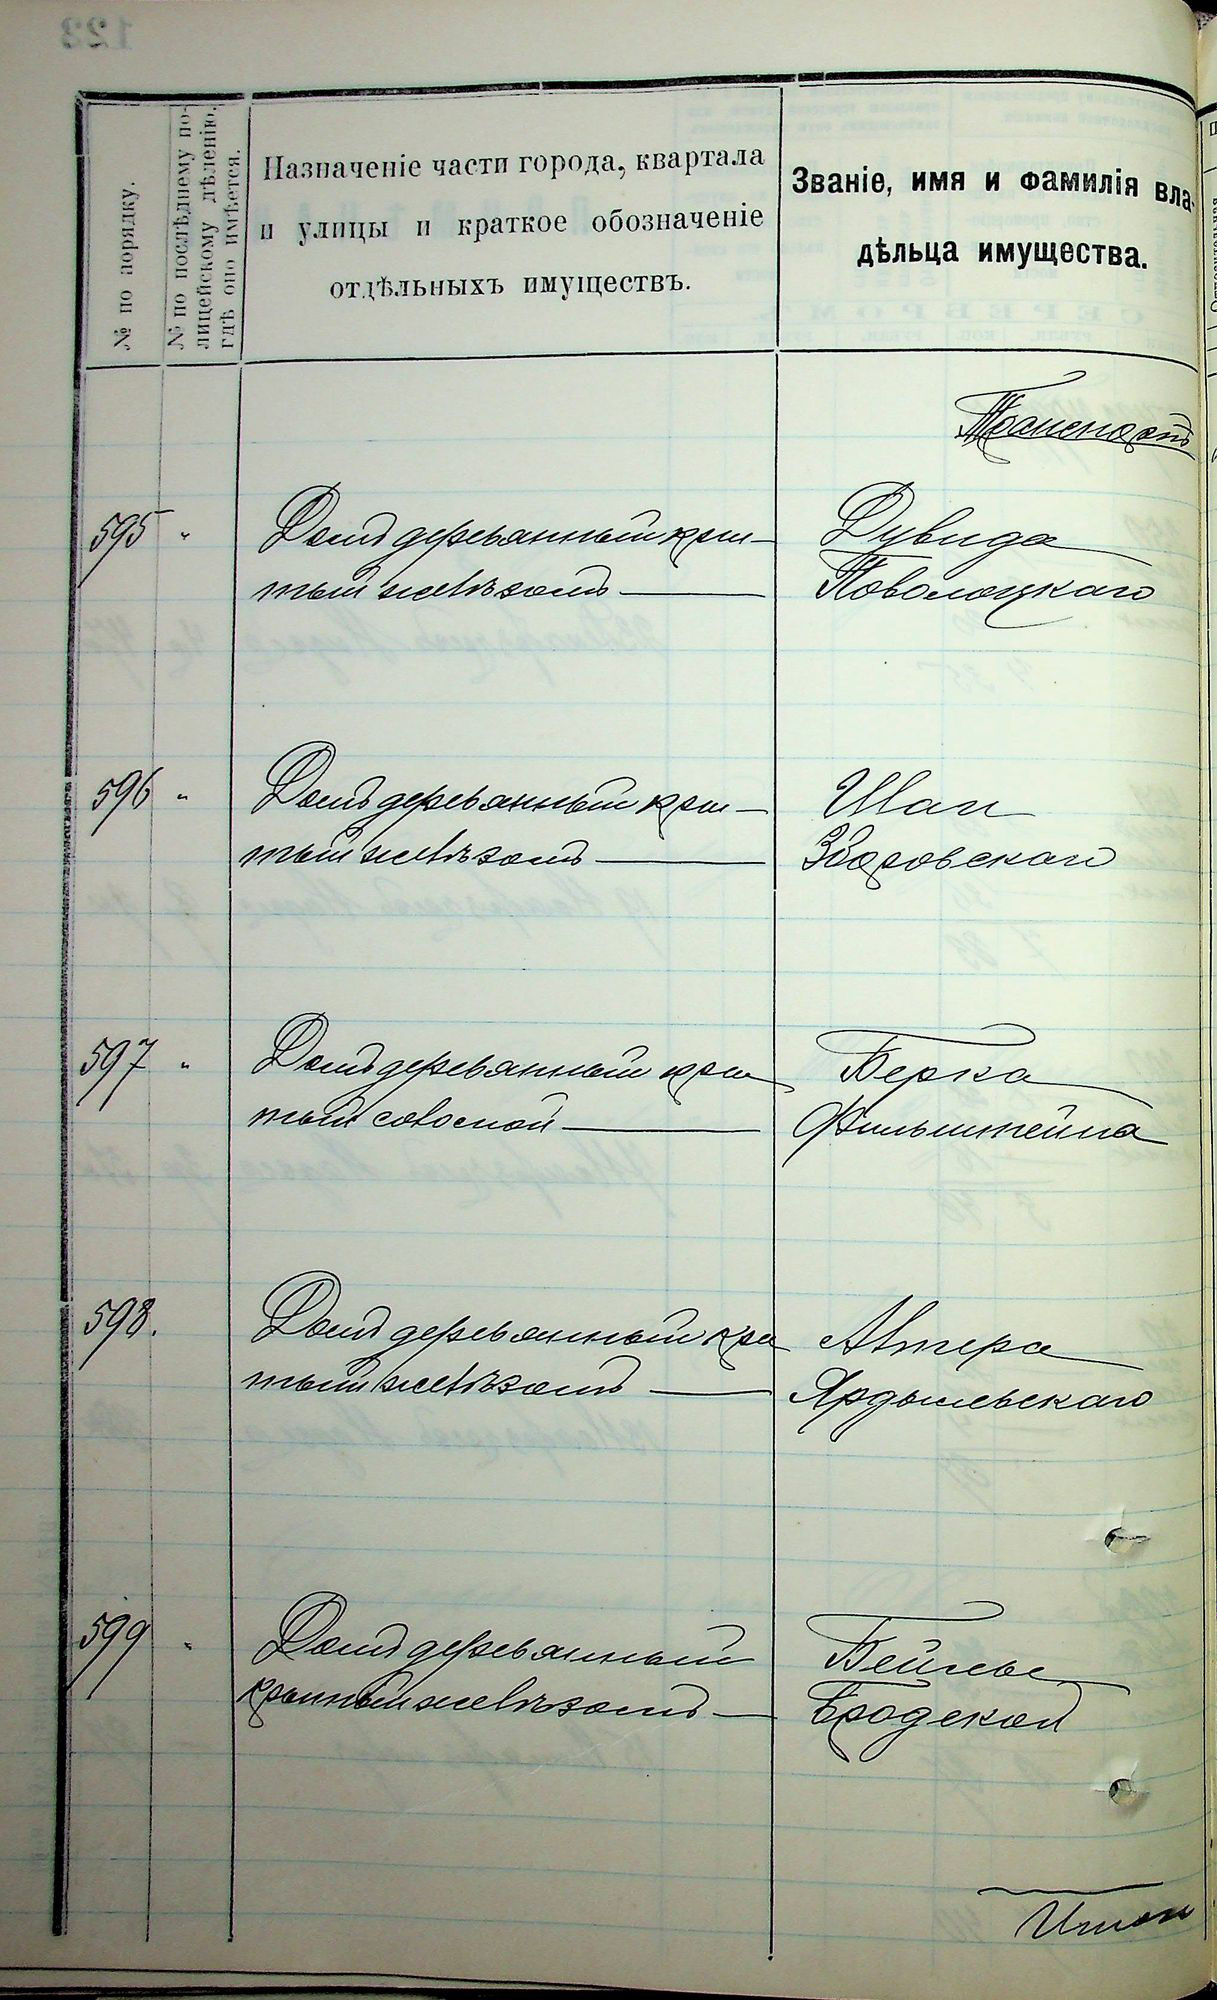 № по порядку.
№ по послѣднему по-
лицейскому дѣленію,
гдѣ оно имѣется.
Назначеніе части города, квартала
и улицы и краткое обозначеніе
отдѣльныхъ имуществъ.
Званіе, имя и фамилія вла-
дѣльца имущества.
Транспортъ
595 "
Домъ деревянный кры-
тый желѣзомъ
Дувида
Поволоцкаго
596 "
Домъ деревянный кры-
тый желѣзомъ
Шаи
Зборовскаго
597 "
Домъ деревянный кры
тый соломой
Берка
Фильштейна
598.
Домъ деревянный кры
тый желѣзомъ
Алтера
Ярдышевскаго
599 "
Домъ деревянный
крытый желѣзомъ
Бейлы
Бродской
Итого